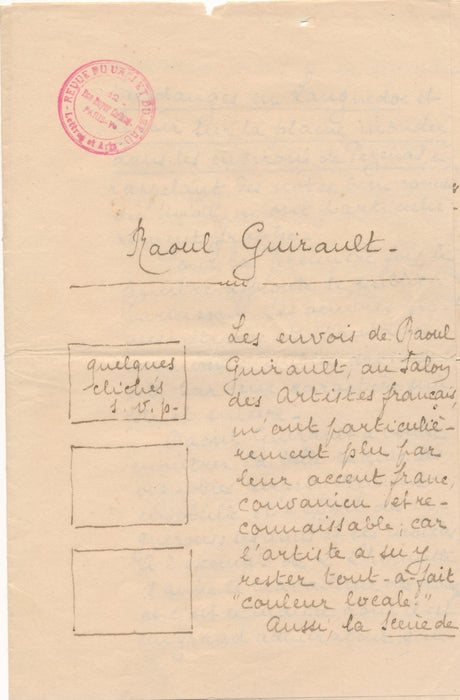 REVUE DU VRAI ET DU BEAU
Lettres et Arts
PARIS
Raoul Guirault -
quelques
clichés
s. v. p-
Les envois de Raoul
Guirault, au Salon
des Artistes français,
m'ont particuliè-
rement plu par
leur accent franc,
convaincu et re-
connaissable; car
l'artiste a su y
rester tout-à-fait
"couleur locale."
Aussi, la Scène de